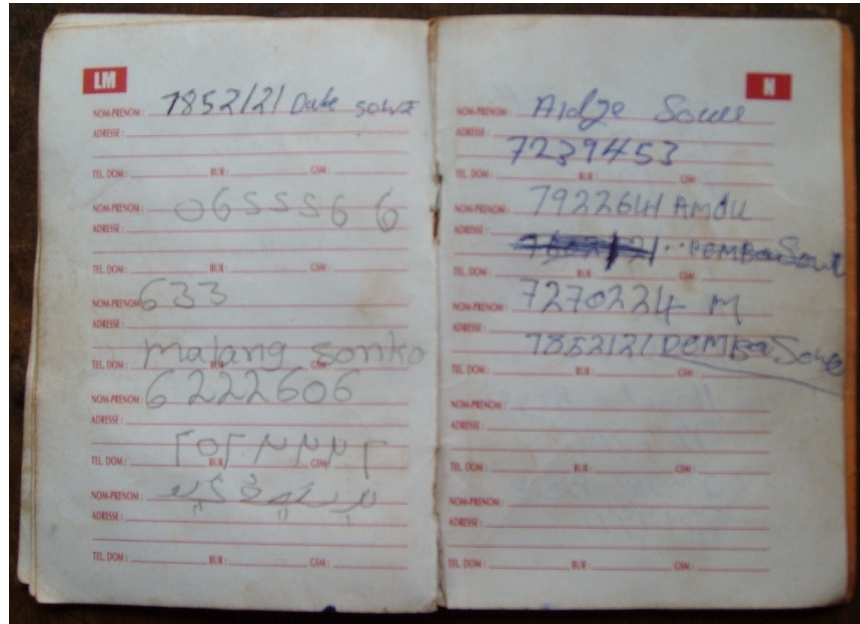 LM
NOM-PRENOM : 7852121 Duke sowe
ADRESSE :
TEL. DOM : BUR : GSM :
NOM-PRENOM : 0655566
ADRESSE :
TEL. DOM : BUR : GSM :
NOM-PRENOM : 633
ADRESSE :
TEL. DOM : malang sonko
NOM-PRENOM : 6222606
ADRESSE :
TEL. DOM : BUR : GSM :
NOM-PRENOM :
ADRESSE :
TEL. DOM : BUR : GSM :
N
NOM-PRENOM : Aidje Sowe
ADRESSE :
7239453
TEL. DOM : BUR : GSM :
NOM-PRENOM : 7922641 AMdu
ADRESSE : DEMBa Sowe
TEL. DOM : BUR : GSM :
NOM-PRENOM : 7270224 M
ADRESSE :
7852121 DEMBa Sowe
TEL. DOM : BUR : GSM :
NOM-PRENOM :
ADRESSE :
TEL. DOM : BUR : GSM :
NOM-PRENOM :
ADRESSE :
TEL. DOM : BUR : GSM :